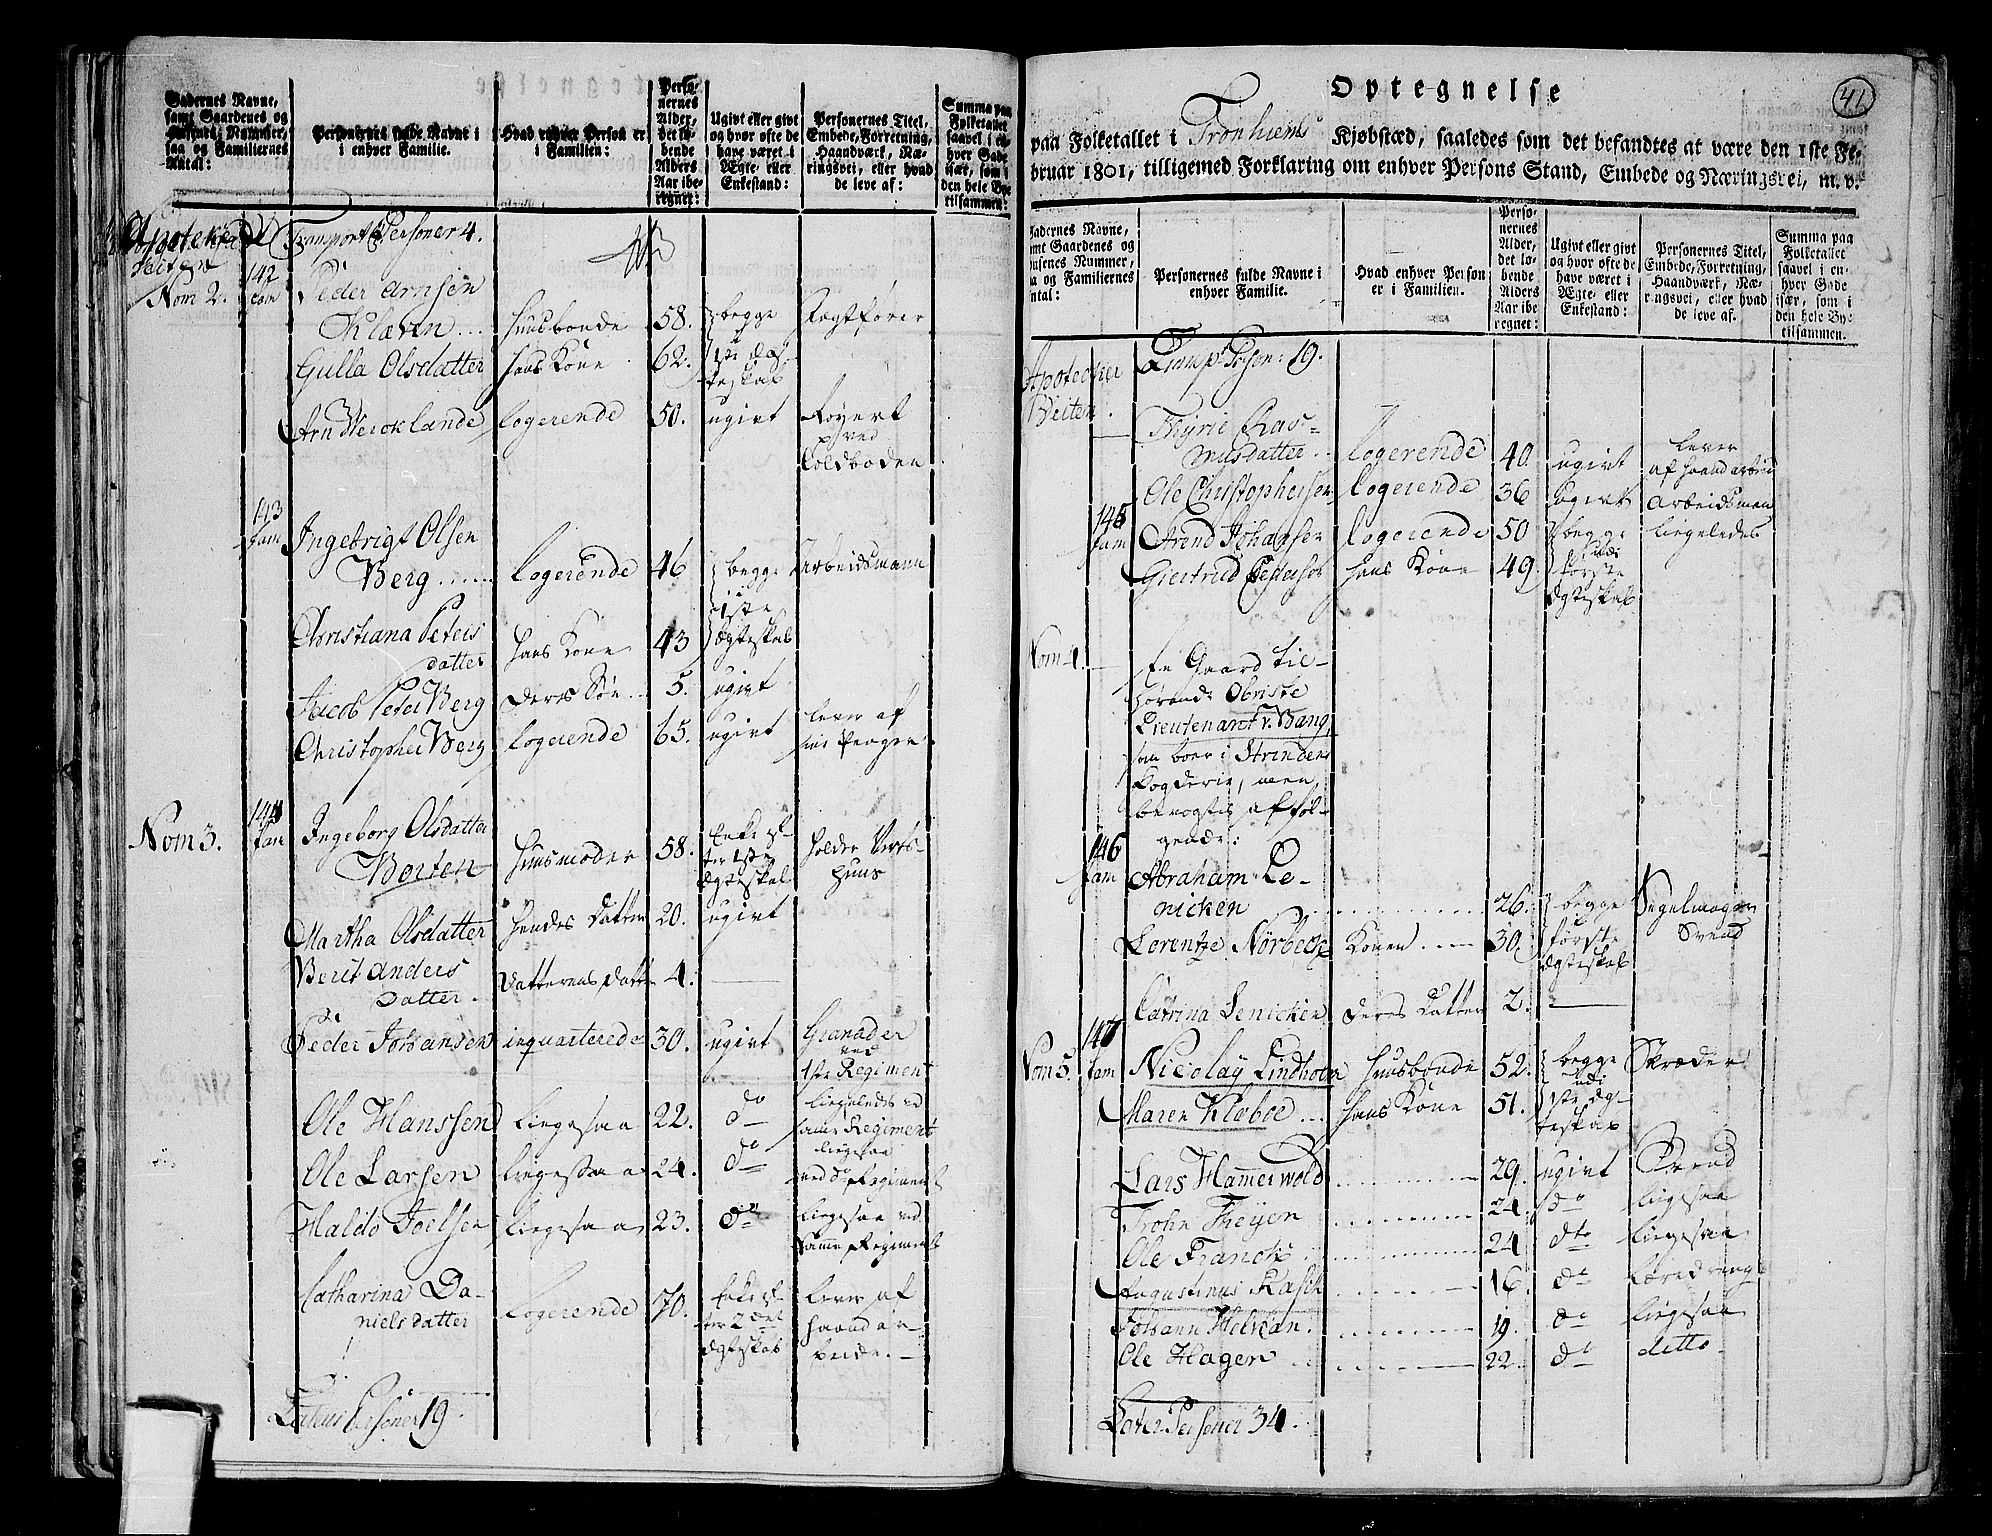 Gadernes Navne, samt Gaardenes og Husenes Nummer, saa og Familiernes Antal:
Personernes fulde Navne i enhver Familie.
Hvad enhver Person er i Familien:
Personernes Alder, det løbende Alders Aar iberegnet:
Ugivt eller givt og hvor ofte de have været i Ægte- eller Enkestand:
Personernes Titel, Embede, Forretning, Haandværk, Næringsvei, eller hvad de leve af:
Summa paa Folketallet saavel i enhver Gade især, som i den hele By tilsammen:
Transport Personer 4.
Nom 2. 142 fam Peder Arnsen
Klæren ... Huusbonde 58. begge Fragtfører
Gulla Olsdatter hans Kone 62. 1ste Æg-
teskab
Arn Weroklande logerende 50. ugivt Røyert
ved
Toldboden
143
fam Ingebrigt Olsen
Berg ...... logerende 46 begge Arbeidsmann
i 1ste
Christiana Peters hans Kone 43 Ægteskab
datter
Jacob Peter Berg deres Søn .. 5. ugivt
Christopher Berg logerende 65. ugivt lever af
sine Penger
Nom 3. 144 fam Ingeborg Olsdatter
Borten Huusmoder 58. Enke ef-
ter 1ste
Ægteskab holder Verts-
huus
Martha Olsdatter hendes Datter 20. ugivt
Berit Anders
datter. Datterens Datt 4. —
Peder Johansen inquarterede 30. ugivt Granader
ved
1ste Regiment
Ole Hanssen ligesaa 22. do ligeledes ved
samme Regiment
Ole Larsen ligesaa 24. do ligesaa
ved do Regiment
Haldo Joelsen ligesaa 23. do ligesaa ved
Samme Regiment
Catharina Da-
nielsdatter logerende 70. Enke ef-
ter 2det
Ægteskab lever af
haand ar-
beide.
Latus Personer 19.
41
Optegnelse
paa Folketallet i Tronhiems Kjøbstæd, saaledes som det befandtes at være den 1ste Fe-
bruar 1801, tilligemed Forklaring om enhver Persons Stand, Embede og Næringsvei, m. v.
Gadernes Navne, samt Gaardenes og Husenes Nummer, saa og Familiernes Antal:
Personernes fulde Navne i enhver Familie.
Hvad enhver Person er i Familien.
Personernes Alder, det løbende Alders Aar iberegnet:
Ugivt eller givt og hvor ofte de have været i Ægte- eller Enkestand:
Personernes Titel, Embede, Forretning, Haandværk, Næringsvei, eller hvad de leve af.
Summa paa Folketallet saavel i enhver Gade især, som i den hele By tilsammen.
Apotecker
Veiten. Transp. Person: 19.
Thyrie Ras-
musdatter .. logerende 40. ugivt lever
af haandarbeid
Ole Christophersen logerende 36 ugivt Arbeidsmen
145
fam Arend Johansen logerende 50 begge ligeledes
Giertrud Pedersdr hans Kone 49 udi
første
Ægteskab
Nom 4. En Gaard til-
hørende Obriste
Lieutenant v. Bang,
som boer i Strindens
Fogderie, men
beboes af føl-
gende:
146
fam Abraham Le-
nicken ........ 26. begge Segelmager
Svend
Lorentze Nørbeck Konen .... 30. første
Ægteskab
Catrina Lenicken deres Datter 2. —
Nom 5. 147
fam Nicolay Lindholm Huusbonde 52. begge Skræder
udi
Maren Klæboe ... hans Kone 51. 1ste Æg-
teskab
Lars Hamerwold ........ 29. ugivt Svend
Trohn Theyen ........ 24. do ligesaa
Ole Franck ........ 24 dto ligesaa
Augustinus Rasch ........ 16. do Læredreng
Johann Helkan. ........ 19. do ligesaa
Ole Hagen ........ 22. do ditto
Later. Personer 34.